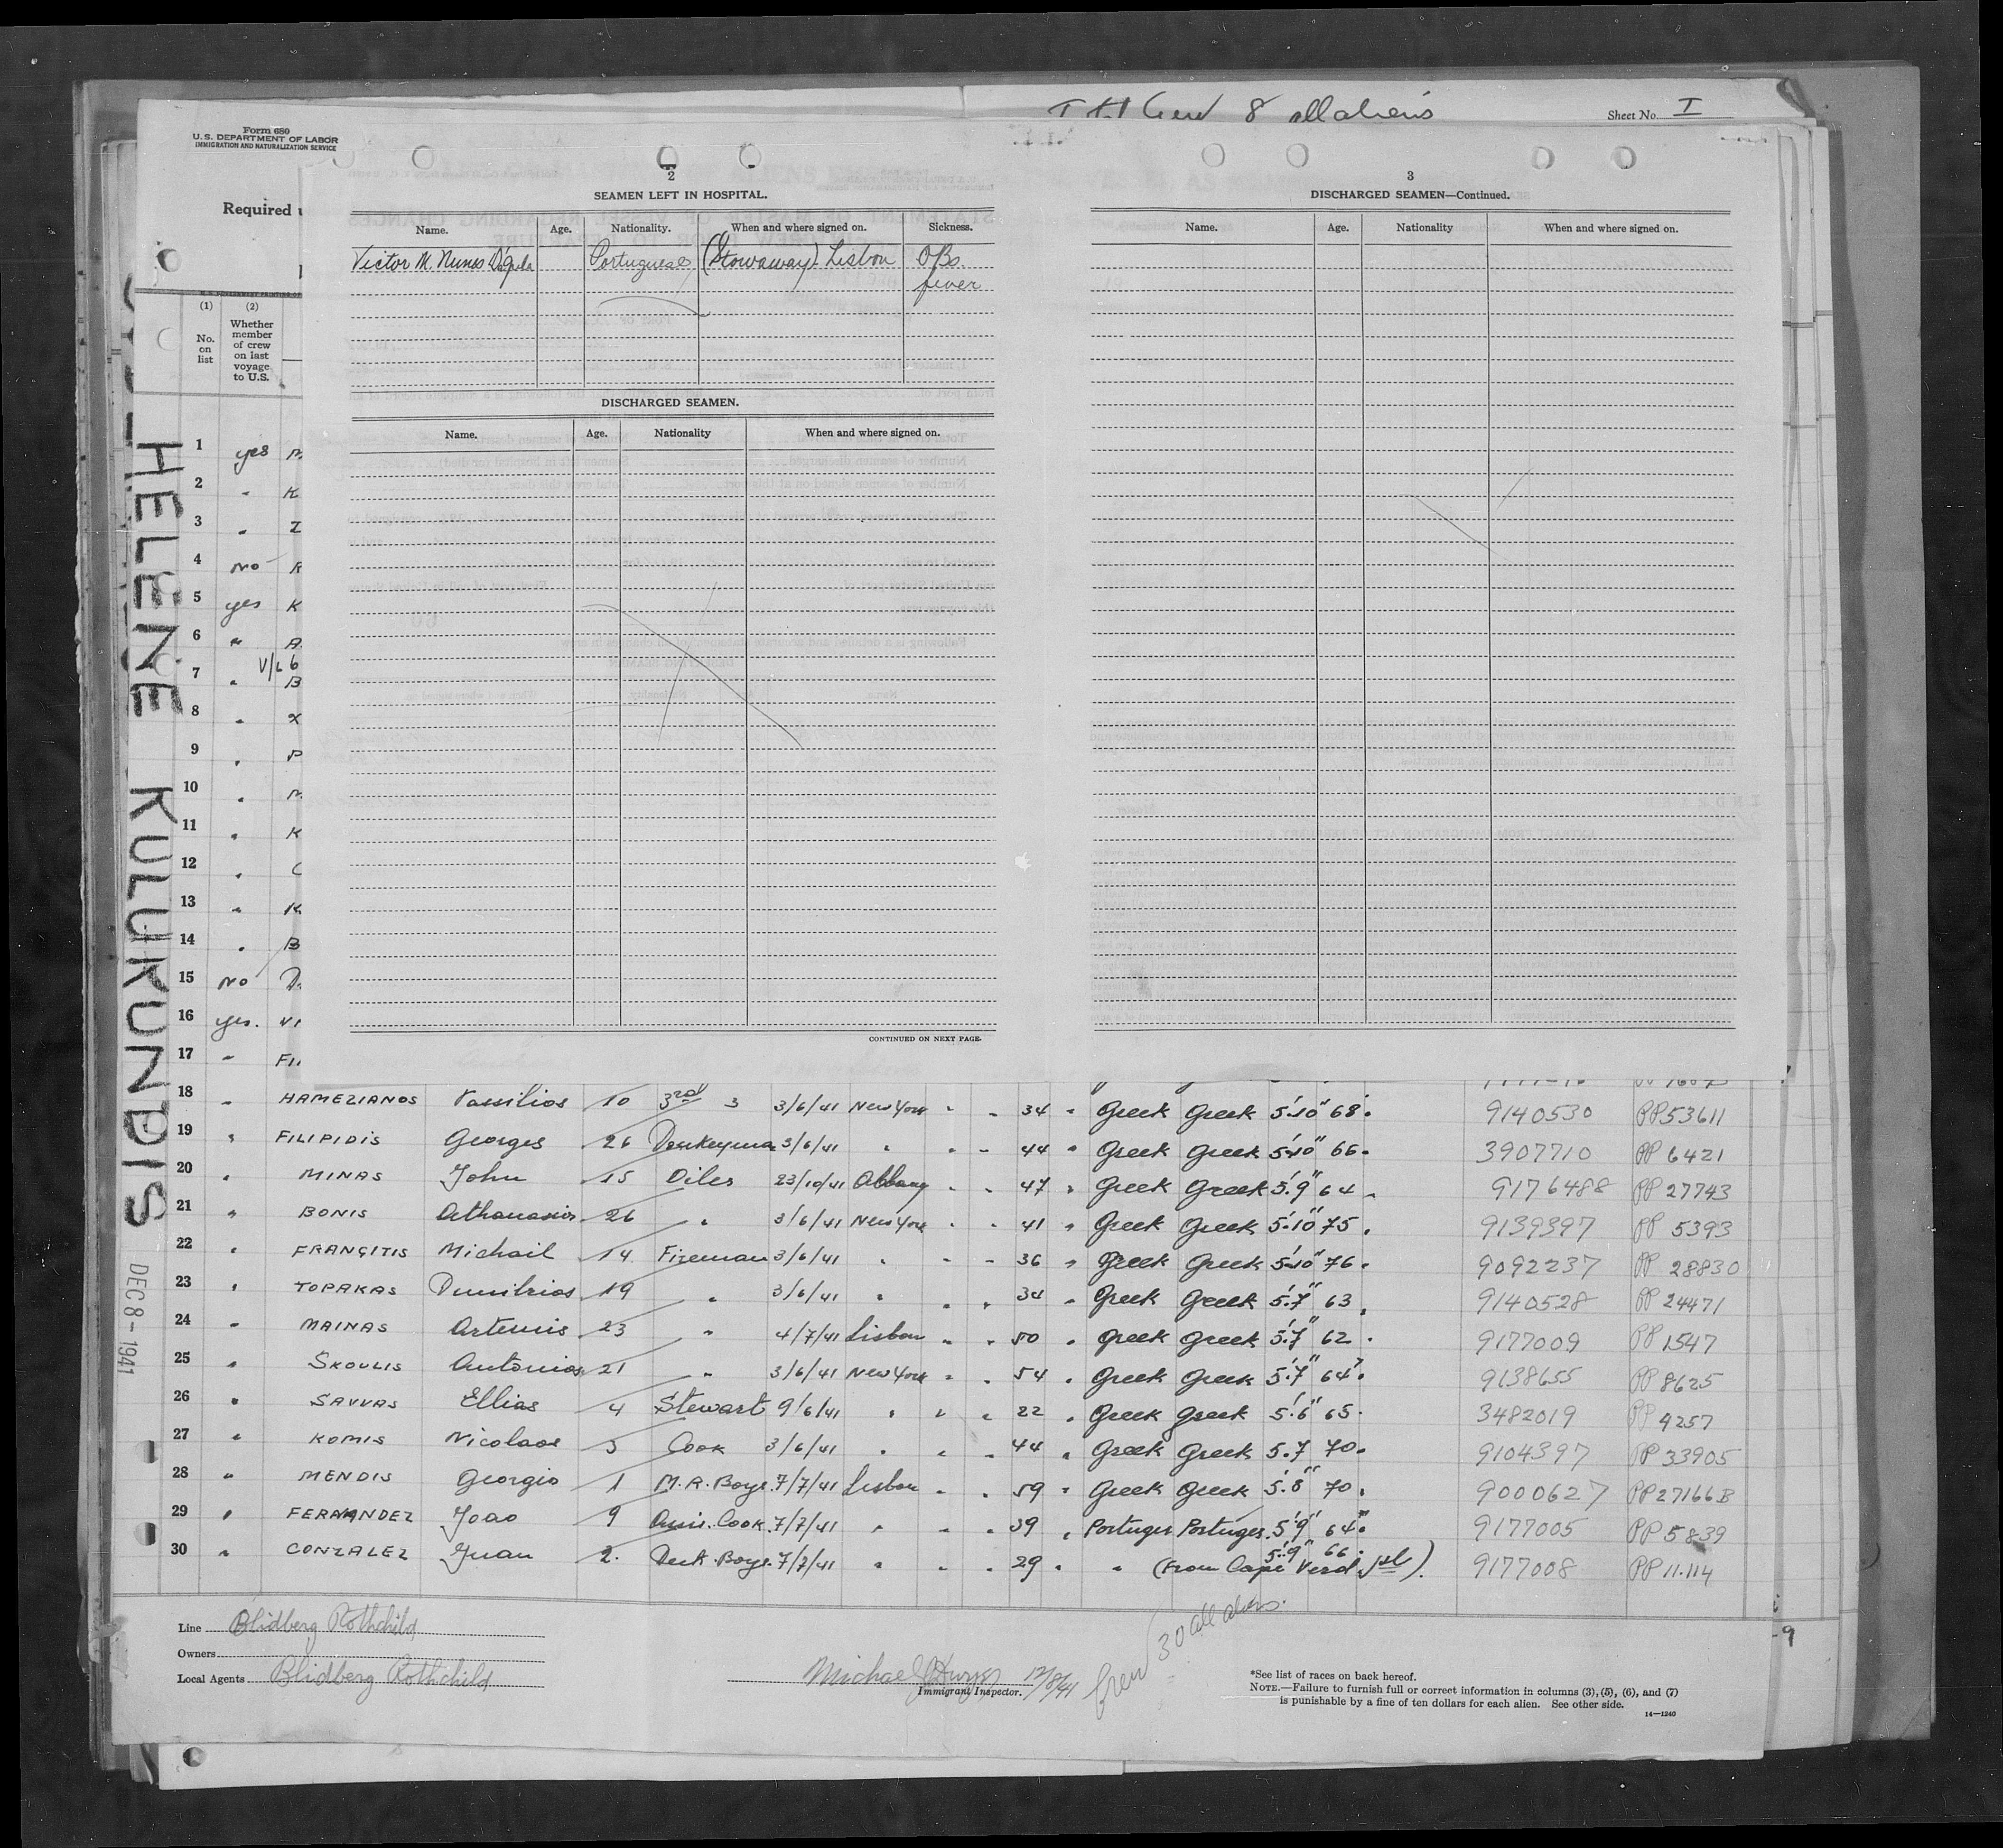 8 all aliens
Sheet No. I
Form 680
U.S. DEPARTMENT OF LABOR
IMMIGRATION AND NATURALIZATION SERVICE
Required
(1) (2)
No. on list
Whether member of crew on last voyage to U.S.
2
SEAMEN LEFT IN HOSPITAL.
Name. Age. Nationality. When and where signed on. Sickness.
Victor M. Nunes Portuguese (Stowaway) Lisbon Obs.
fever
DISCHARGED SEAMEN.
Name. Age. Nationality When and where signed on.
CONTINUED ON NEXT PAGE.
3
DISCHARGED SEAMEN—Continued.
Name. Age. Nationality When and where signed on.
HELENE KULUKUNDIS
DEC 8 - 1941
1 yes M
2 " K
3 " I
4 no K
5 yes K
6 " A
V/L 6
7 " B
8 " X
9 " P
10 " M
11 " K
12 " C
13 " K
14 " B
15 no D
16 yes. VI
17 " FIL
18 " HAMEZIANOS Vassilios 10 3rd 3 3/6/41 New York " " 34 " Greek Greek 5'.10" 68. 9140530 PP53611
19 " FILIPIDIS Georges 26 Donkeyma 3/6/41 " " " 44 " Greek Greek 5'.10" 66. 3907710 PP 6421
20 " MINAS John 15 Oiler 23/10/41 " " 47 " Greek Greek 5'.9" 64. 9176488 PP 27743
21 " BONIS Athanasios 26 " 3/6/41 New York " " 41 " Greek Greek 5'.10" 75. 9139397 PP 5393
22 " FRANGITIS Michail 14 Fireman 3/6/41 " " " 36 " Greek Greek 5'.10" 76. 9092237 PP 28830
23 " TOPAKAS Dimitrios 19 " 3/6/41 " " " 34 " Greek Greek 5'.7" 63. 9140528 PP 24471
24 " MAINAS Artemis 23 " 4/7/41 Lisbon " " 50 " Greek Greek 5'.7" 62. 9177009 PP 1547
25 " SKOULIS Antonios 21 " 3/6/41 New York " " 54 " Greek Greek 5'.7" 64. 9138655 PP 8625
26 " SAVVAS Ellias 4 Stewart 9/6/41 " " " 22 " Greek Greek 5'.6" 65. 3482019 PP 9257
27 " KOMIS Nicolaos 3 Cook 3/6/41 " " " 44 " Greek Greek 5.7 70. 9104397 PP 33905
28 " MENDIS Georgio 1 M.R. Boys. 7/7/41 Lisbon " " 59 " Greek Greek 5'.8" 70. 9000627 PP27166B
29 " FERNANDEZ Joao 9 Assis. Cook. 7/7/41 " " " 39 " Portuges Portuges. 5'.9" 64. 9177005 PP 5839
30 " CONZALEZ Juan 2. Deck. Boys. 7/7/41 " " " 29 " " (From Cape Verd Isl). 5'.9" 66. 9177008 PP 11.114
Line Blidberg Rothchild
Owners
Local Agents Blidberg Rothchild
Michael 12/8/41
Immigrant Inspector.
Crew 30 all aliens.
*See list of races on back hereof.
NOTE.—Failure to furnish full or correct information in columns (3), (5), (6), and (7)
is punishable by a fine of ten dollars for each alien. See other side.
14—1240